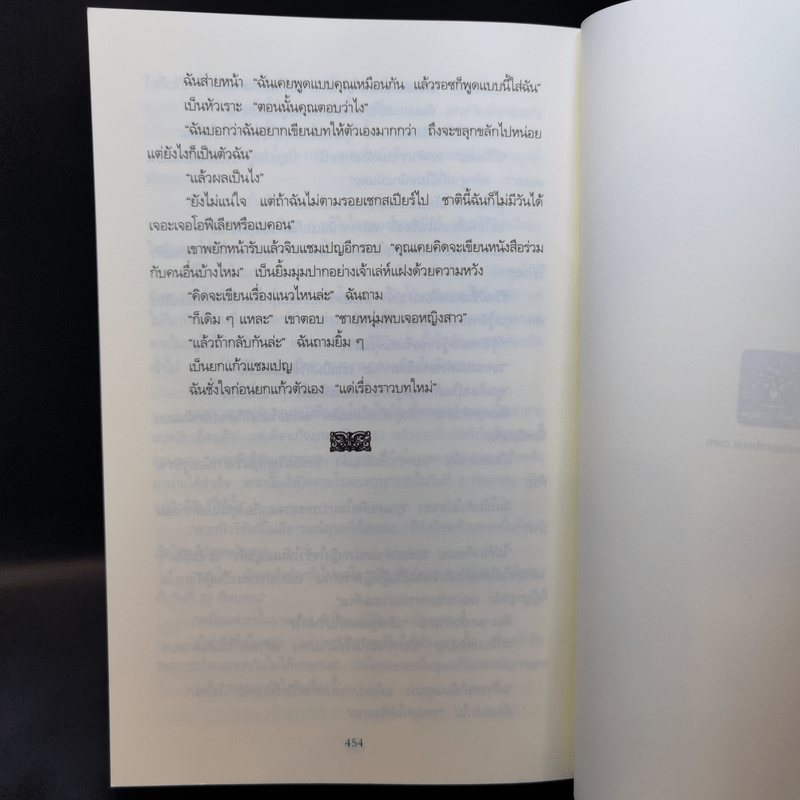 ฉันส่ายหน้า “ฉันเคยพูดแบบคุณเหมือนกัน แล้วรอซก็พูดแบบนี้ใส่ฉัน”
เบ็นหัวเราะ “ตอนนั้นคุณตอบว่าไง”
“ฉันบอกว่าฉันอยากเขียนบทให้ตัวเองมากกว่า ถึงจะขลุกขลักไปหน่อย
แต่ยังไงก็เป็นตัวฉัน”
“แล้วผลเป็นไง”
“ยังไม่แน่ใจ แต่ถ้าฉันไม่ตามรอยเชกสเปียร์ไป ชาตินี้ฉันก็ไม่มีวันได้
เจอะเจอโอฟีเลียหรือเบคอน”
เขาพยักหน้ารับแล้วจิบแชมเปญอีกรอบ “คุณเคยคิดจะเขียนหนังสือร่วม
กับคนอื่นบ้างไหม” เบ็นยิ้มมุมปากอย่างเจ้าเล่ห์แฝงด้วยความหวัง
“คิดจะเขียนเรื่องแนวไหนล่ะ” ฉันถาม
“ก็เดิม ๆ แหละ” เขาตอบ “ชายหนุ่มพบเจอหญิงสาว”
“แล้วถ้ากลับกันล่ะ” ฉันถามยิ้ม ๆ
เบ็นยกแก้วแชมเปญ
ฉันชั่งใจก่อนยกแก้วตัวเอง “แด่เรื่องราวบทใหม่”
454